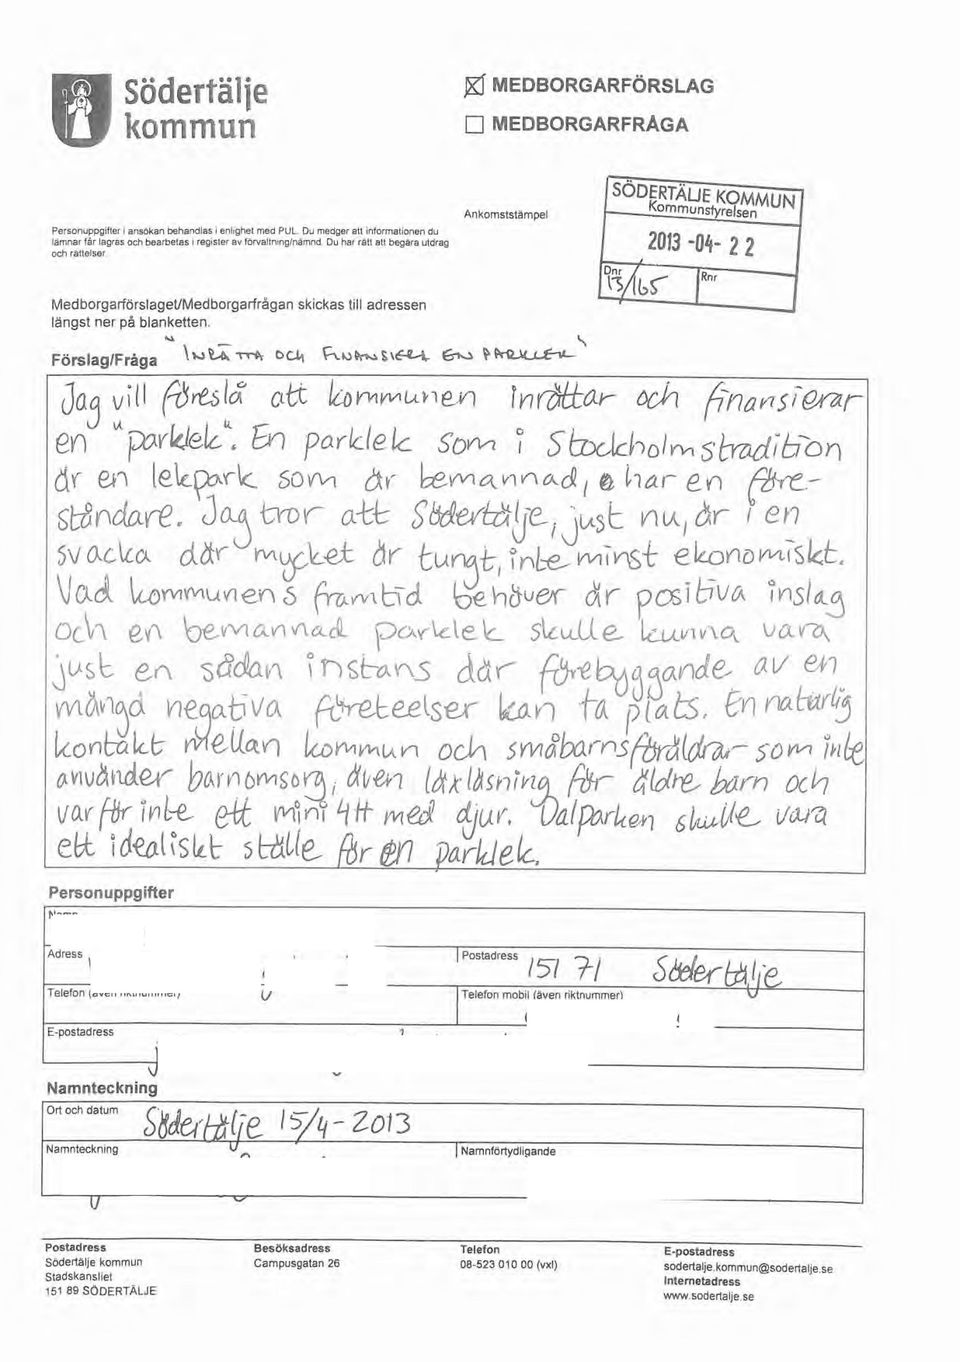 Södertälje
kommun
☒ MEDBORGARFÖRSLAG
☐ MEDBORGARFRÅGA
Ankomststämpel
SÖDERTÄLJE KOMMUN
Kommunstyrelsen
2013 -04- 2 2
Dnr
13/165
Rnr
Personuppgifter i ansökan behandlas i enlighet med PUL. Du medger att informationen du
lämnar får lagras och bearbetas i register av förvaltning/nämnd. Du har rätt att begära utdrag
och rättelser.
Medborgarförslaget/Medborgarfrågan skickas till adressen
längst ner på blanketten.
Förslag/Fråga "INRÄTTA OCH FINANSIERA EN PARKLEK"
Jag vill föreslå att kommunen inrättar och finansierar
en "parklek". En parklek som i Stockholmstradition
är en lekpark som är bemannad, har en före-
ståndare. Jag tror att Södertälje, just nu, är i en
svacka där mycket är tungt, inte minst ekonomiskt.
Vad kommunens framtid behöver är positiva inslag
och en bemannad parklek skulle kunna vara
just en sådan instans där förebyggande av en
mängd negativa företeelser kan ta plats. En naturlig
kontakt mellan kommun och småbarnsföräldrar som inte
använder barnomsorg, även läxläsning för äldre barn och
varför inte ett mini 4H med djur. Dalparken skulle vara
ett idealiskt ställe för en parklek.
Personuppgifter
Adress
Postadress
151 71 Södertälje
Telefon (även riktnummer)
Telefon mobil (även riktnummer)
E-postadress
Namnteckning
Ort och datum
Södertälje 15/4-2013
Namnteckning
Namnförtydligande
Postadress
Södertälje kommun
Stadskansliet
151 89 SÖDERTÄLJE
Besöksadress
Campusgatan 26
Telefon
08-523 010 00 (vxl)
E-postadress
sodertalje.kommun@sodertalje.se
Internetadress
www.sodertalje.se